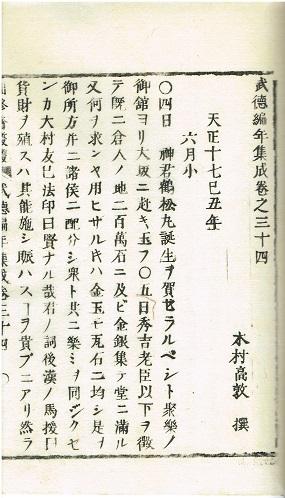 武德編年集成卷之三十四
木村高敦 撰
天正十七己丑年
六月小
〇四日 神君鶴松丸誕生ヲ賀セラルベシト聚樂ノ
御館ヨリ大坂ニ赴キ玉フ〇五日秀吉老臣以下ヲ徴
テ既ニ倉人ノ地二百萬石ニ及ビ金銀集テ堂ニ滿ル
又何ヲ求ン ヤ用ヒザル片ハ金玉モ瓦石ニ均シ是ヲ
御所方幷ニ諸侯ニ配分シ衆ト共ニ樂ミヲ同ジクセ
ンカ大村友巳法印曰賢ナル哉君ノ詞後漢ノ馬援曰
貨財ヲ殖スハ其能施シ賑ハスヿヲ貴ブニアリ然ラ
武德編年集成卷三十四